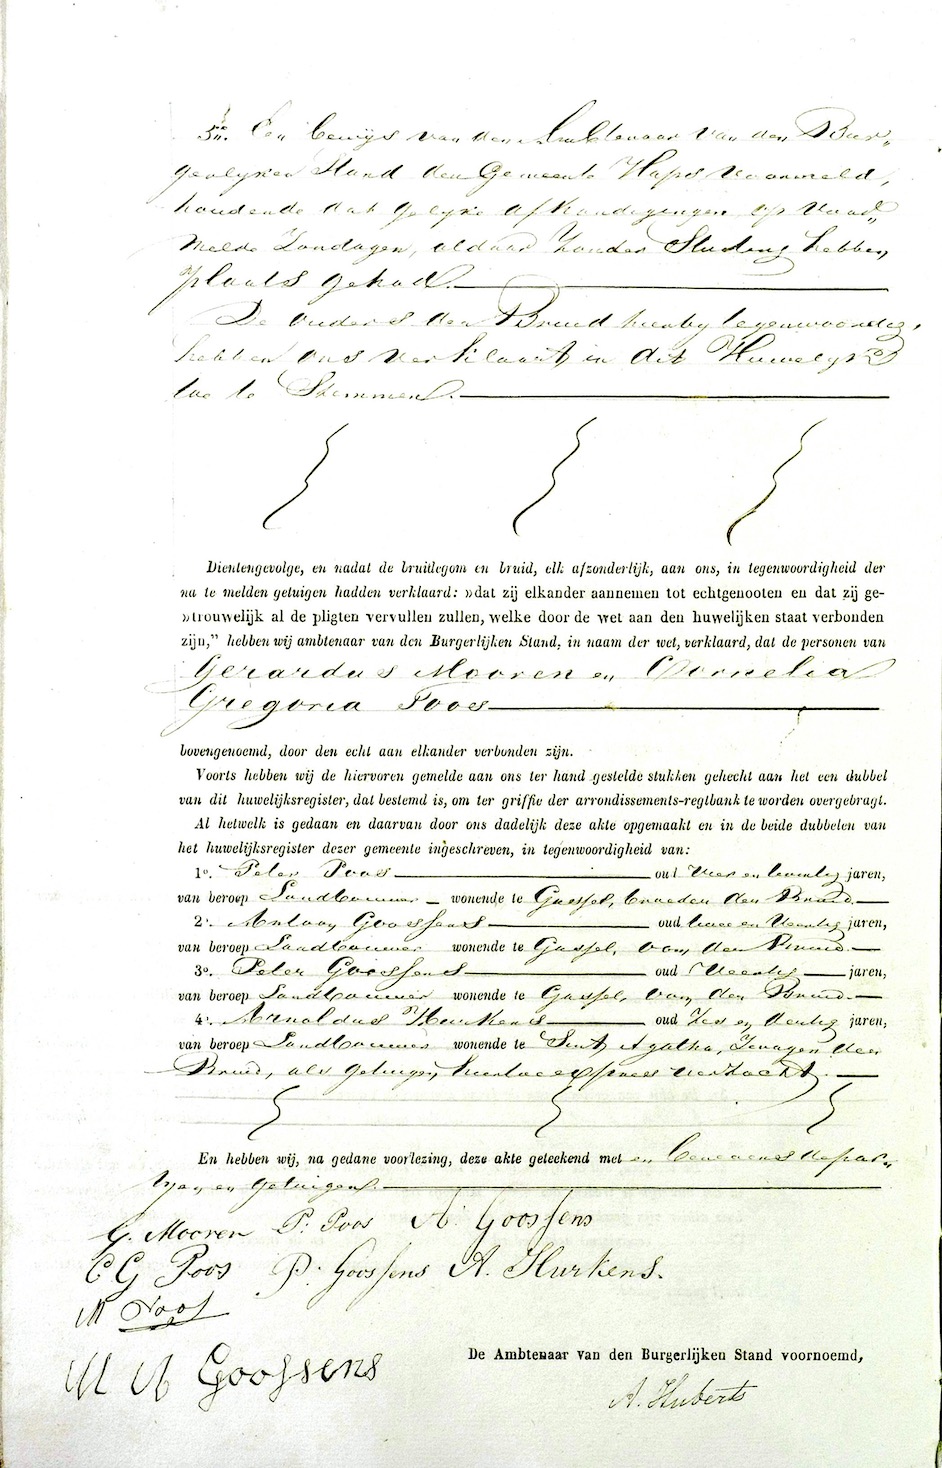 5e. Een bewijs van den Ambtenaar van den Bur„
gerlyken Stand der Gemeente Haps voormeld,
houdende dat gelyke afkondigingen op voor„
melde Zondagen, aldaar zonder Stuiting hebben
plaats gehad.
De ouders der Bruid hierby tegenwoordig,
hebben ons verklaard in dit Huwelyk
toe te Stemmen.
Dientengevolge, en nadat de bruidegom en bruid, elk afzonderlijk, aan ons, in tegenwoordigheid der
na te melden getuigen hadden verklaard: »dat zij elkander aannemen tot echtgenooten en dat zij ge-
»trouwelijk al de pligten vervullen zullen, welke door de wet aan den huwelijken staat verbonden
zijn,” hebben wij ambtenaar van den Burgerlijken Stand, in naam der wet, verklaard, dat de personen van
Gerardus Mooren en Cornelia
Gregoria Poos
bovengenoemd, door den echt aan elkander verbonden zijn.
Voorts hebben wij de hiervoren gemelde aan ons ter hand gestelde stukken gehecht aan het een dubbel
van dit huwelijksregister, dat bestemd is, om ter griffie der arrondissements-regtbank te worden overgebragt.
Al hetwelk is gedaan en daarvan door ons dadelijk deze akte opgemaakt en in de beide dubbelen van
het huwelijksregister dezer gemeente ingeschreven, in tegenwoordigheid van:
1o. Peter Poos oud vier en twintig jaren,
van beroep Landbouwer wonende te Gassel, broeder der Bruid.
2o. Antoon Goossens oud twee en veertig jaren,
van beroep Landbouwer wonende te Gassel, oom der Bruid.
3o. Peter Goossens oud Veertig jaren,
van beroep Landbouwer wonende te Gassel, oom der Bruid.
4o. Arnoldus Hurkens oud Zes en dertig jaren,
van beroep Landbouwer wonende te Sint Agatha, Zwager der
Bruid, als getuigen, hiertoe expres verzocht.
En hebben wij, na gedane voorlezing, deze akte geteekend met en benevens de par„
tyen en getuigen.
G. Mooren P. Poos A. Goossens
C G Poos P. Goossens A. Hurkens.
M Poos
M A Goossens
De Ambtenaar van den Burgerlijken Stand voornoemd,
A. Huberts